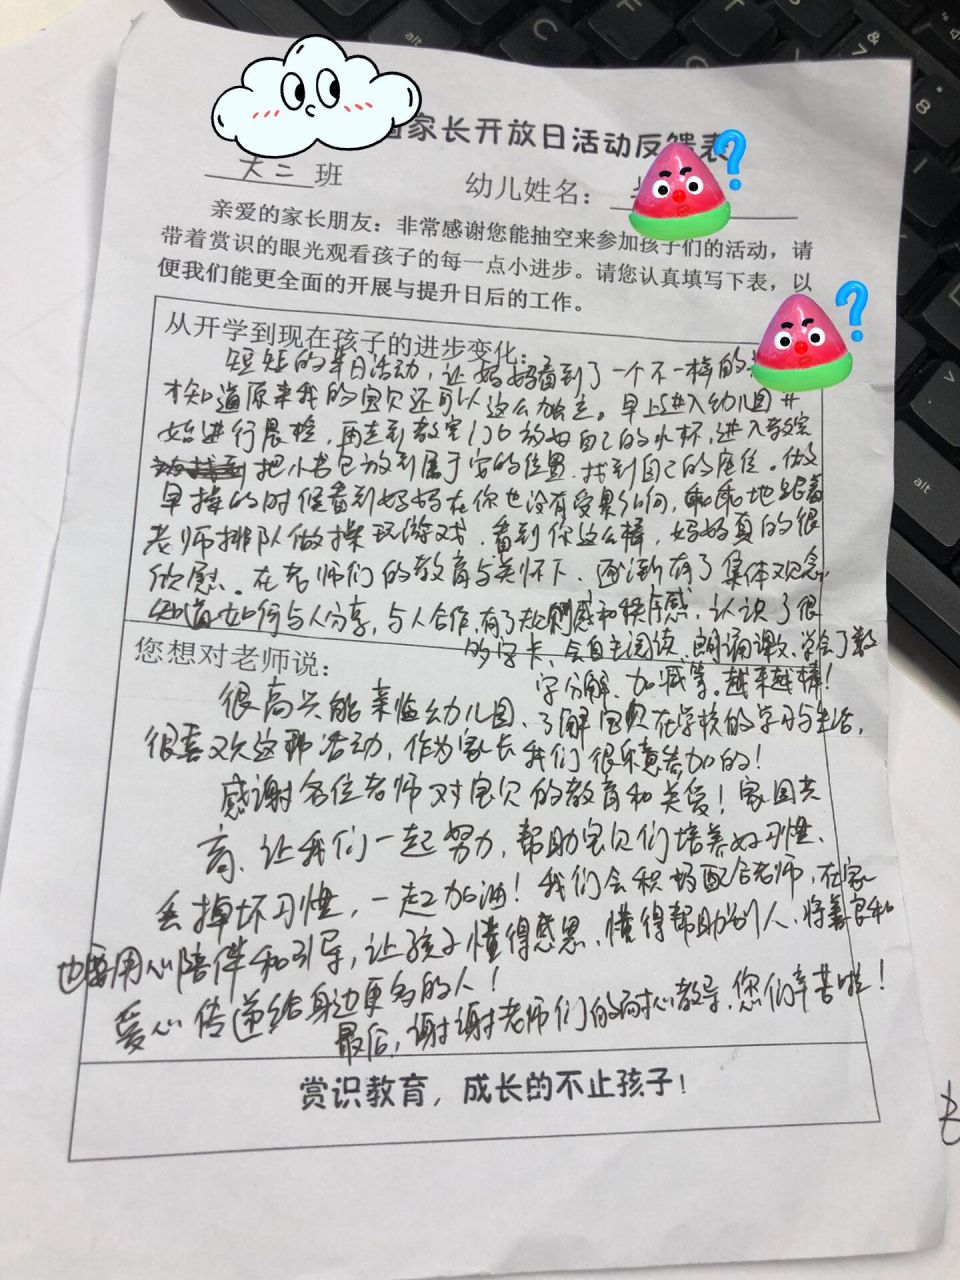 家长开放日活动反馈表
大二班 幼儿姓名：
亲爱的家长朋友：非常感谢您能抽空来参加孩子们的活动，请
带着赏识的眼光观看孩子的每一点小进步。请您认真填写下表，以
便我们能更全面的开展与提升日后的工作。
从开学到现在孩子的进步变化：
短短的半日活动，让妈妈看到了一个不一样的
才知道原来我的宝贝还可以这么加走。早上进入幼儿园开
始进行晨检，再走到教室门口放好自己的水杯，进入教室
把小书包放到属于你的位置，找到自己的座位。做
早操的时候看到妈妈在你也没有受影响，乖乖地跟着
老师排队做操玩游戏，看到你这么棒，妈妈真的很
欣慰。在老师们的教育与关怀下，逐渐有了集体观念
知道如何与人分享，与人合作，有了规则感和秩序感，认识了很
多字卡、会自主阅读、朗诵课文、学会了数
字分解、加减等。越来越棒！
您想对老师说：
很高兴能亲临幼儿园、了解宝贝在学校的学习与生活，
很喜欢这种活动，作为家长我们很乐意参加的！
感谢各位老师对宝贝的教育和关爱！家园共
育、让我们一起努力，帮助宝贝们培养好习惯、
丢掉坏习惯，一起加油！我们会积极配合老师，在家
也要用心陪伴和引导，让孩子懂得感恩、懂得帮助别人、将善良和
爱心传递给身边更多的人！
最后，谢谢老师们的耐心教导，您们辛苦啦！
赏识教育，成长的不止孩子！